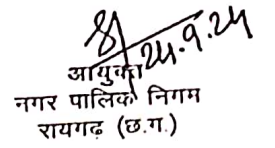 24.9.24
आयुक्त
नगर पालिक निगम
रायगढ़ (छ.ग.)